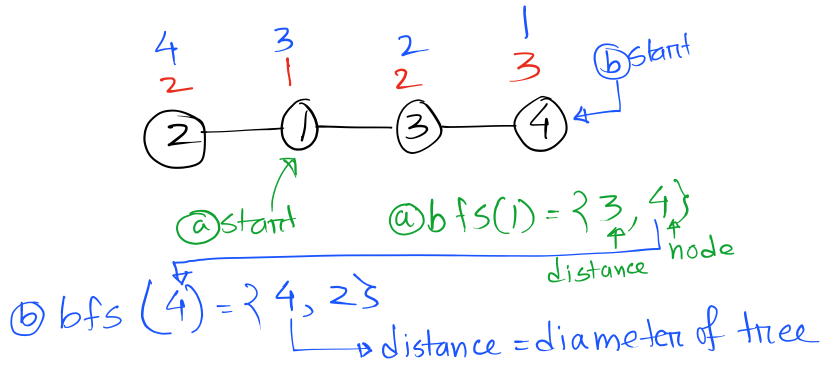 4 3 2 1
2 1 2 3
ⓑ start
2 1 3 4
ⓐ start
ⓐ bfs(1) = {3, 4}
distance
node
ⓑ bfs (4) = {4, 2}
distance = diameter of tree